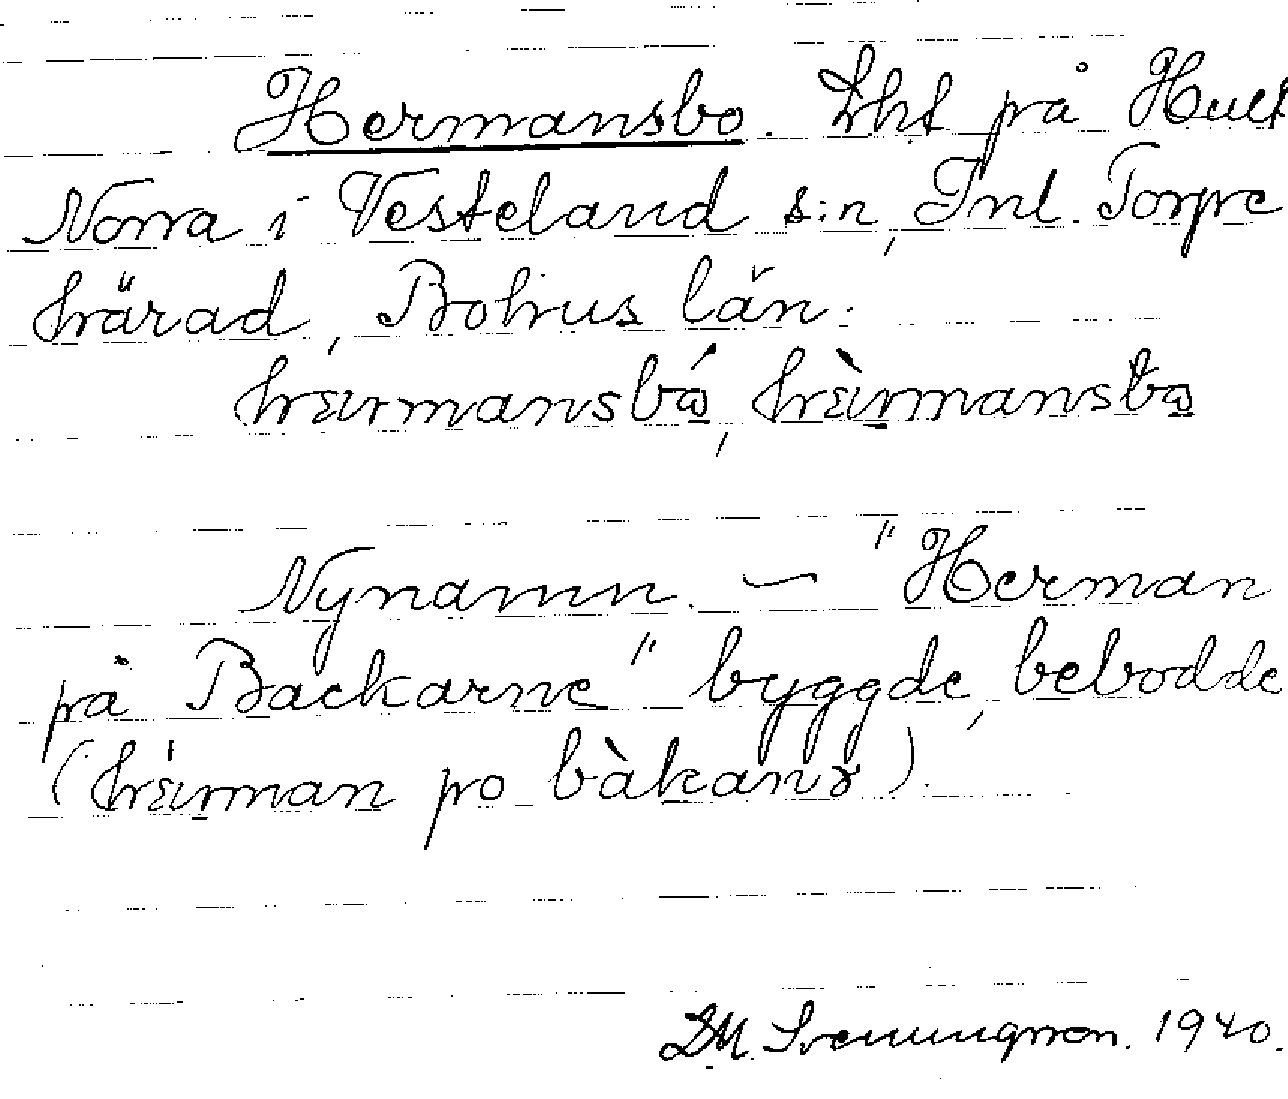 Hermansbo. Lht på Hult
Norra i Vesteland s:n, Inl. Torpe
härad, Bohus län.
hɛırmansbɷ́, hɛ̀ırmansbɷ
Nynamn. — "Herman
på Backarne" byggde, bebodde
(hɛ́ırman po bàkanɤ).
Svenungsson. 1940.